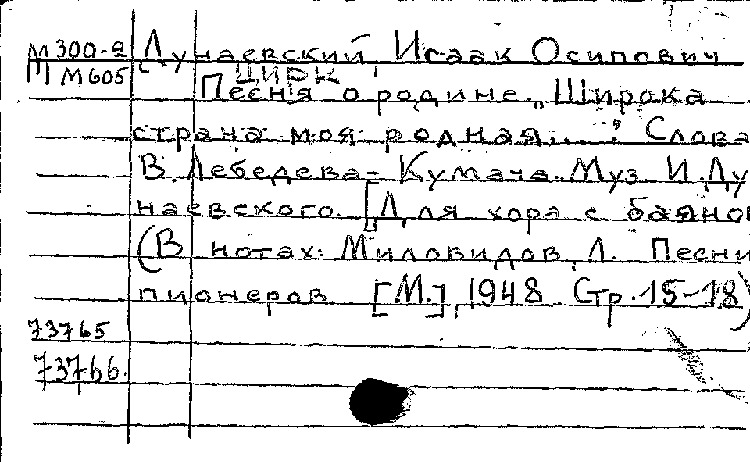 М300-2 Дунаевский, Исаак Осипович
П М605 ЦИРК
Песня о родине „Широка
страна моя родная...." Слова
В. Лебедева-Кумача. Муз. И. Ду
наевского. [Для хора с баяном
(В нотах: Миловидов, Л. Песни
пионеров. [М.], 1948. Стр. 15-18)
73765
73766.